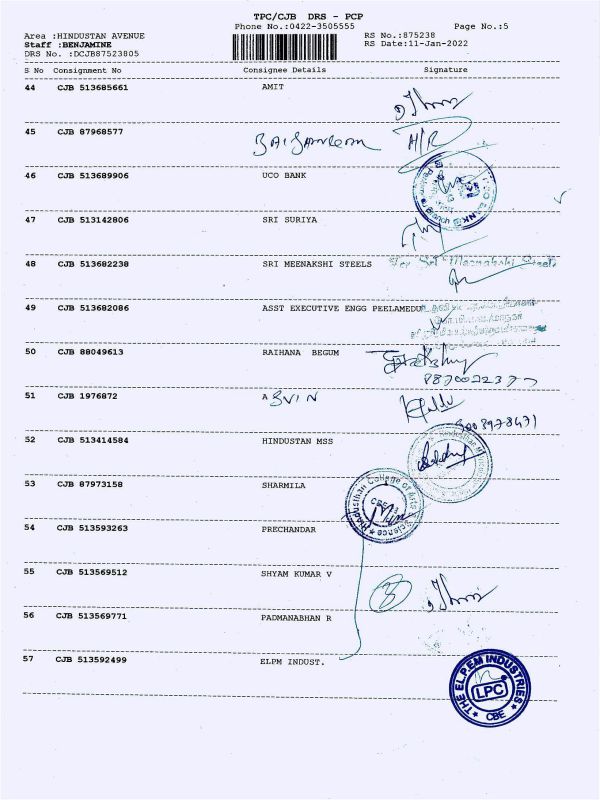 TPC/CJB DRS - PCP
Phone No.:0422-3505555 Page No.:5
Area :HINDUSTAN AVENUE RS No.:875238
Staff :BENJAMINE RS Date:11-Jan-2022
DRS No. :DCJB87523805
S No Consignment No Consignee Details Signature
44 CJB 513685661 AMIT
45 CJB 87968577 H/R
46 CJB 513689906 UCO BANK
UCO BANK
47 CJB 513142806 SRI SURIYA
48 CJB 513682238 SRI MEENAKSHI STEELS For Sri Meenakshi Steels
49 CJB 513682086 ASST EXECUTIVE ENGG PEELAMEDU
50 CJB 88049613 RAIHANA BEGUM
51 CJB 1976872 A SVIN
52 CJB 513414584 HINDUSTAN MSS
53 CJB 87973158 SHARMILA
Hindusthan College of Arts Science
54 CJB 513593263 PRECHANDAR
55 CJB 513569512 SHYAM KUMAR V
56 CJB 513569771 PADMANABHAN R
57 CJB 513592499 ELPM INDUST.
THE ELPEM INDUSTRIES
LPC
CBE